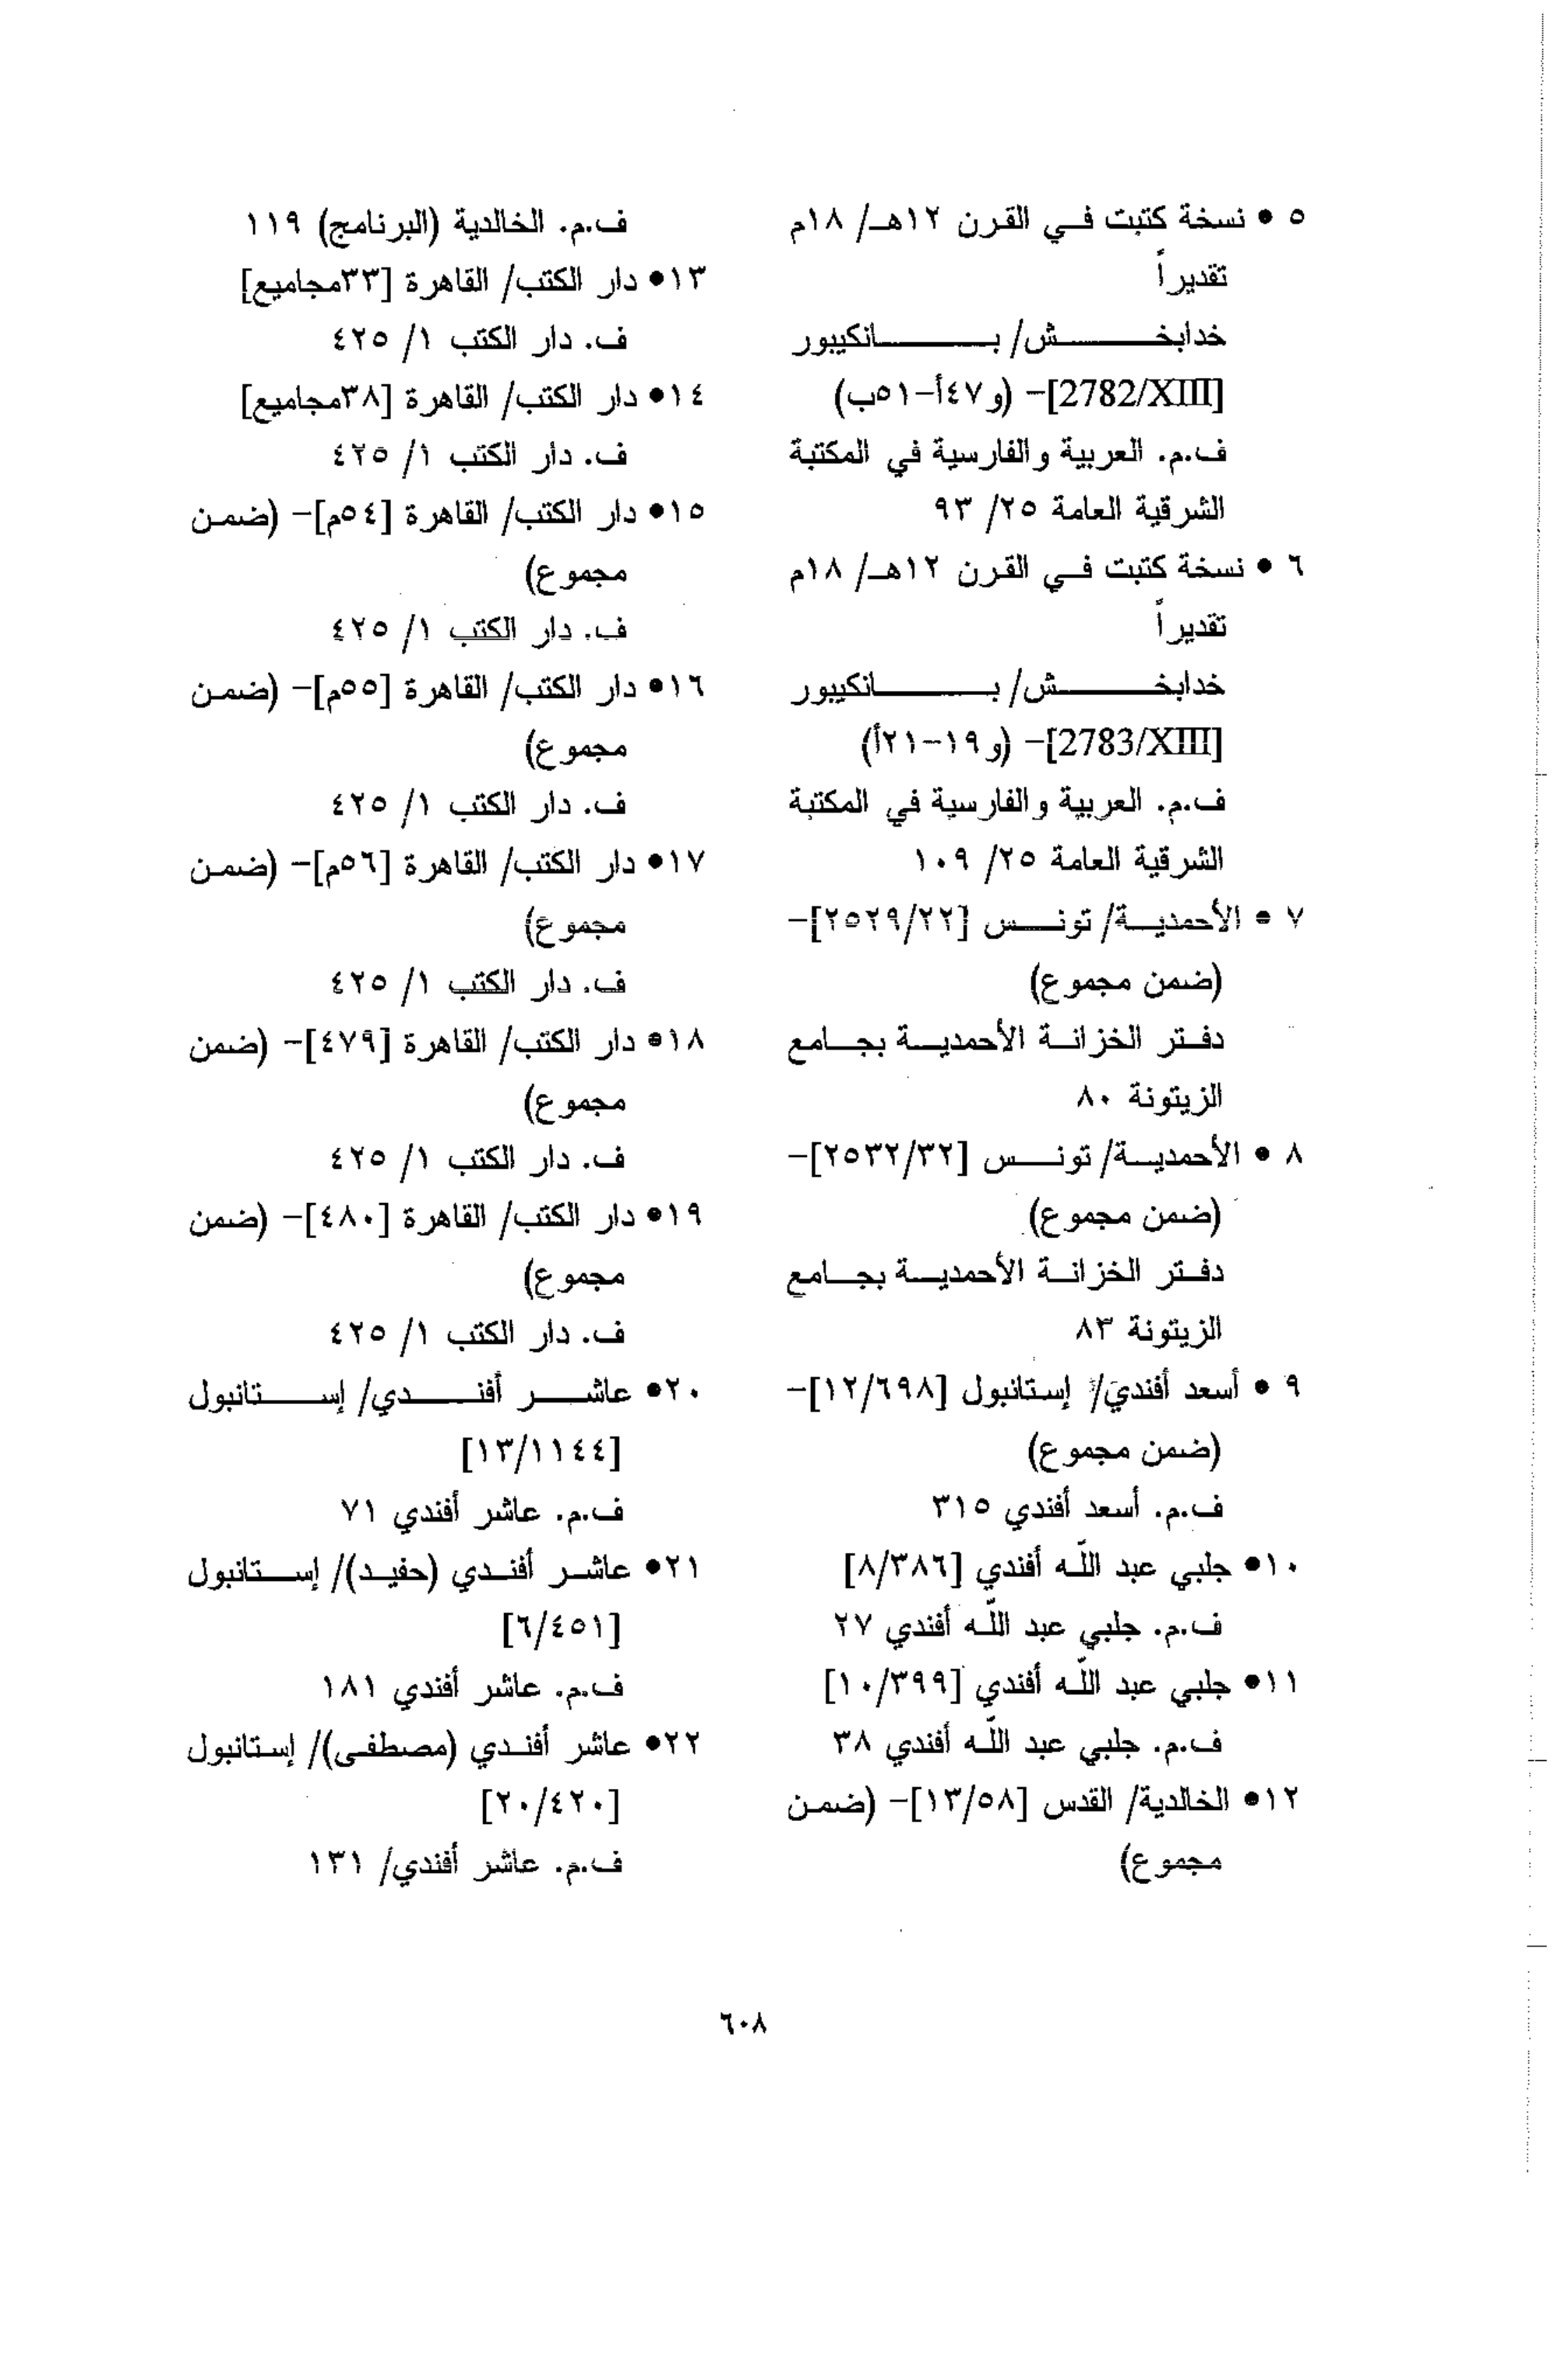 ٥ • نسخة كتبت في القرن ١٢هـ/ ١٨م
تقديراً
خدابخش/ بانكيبور
[2782/XIII]- (و٤٧أ-٥١ب)
ف.م. العربية والفارسية في المكتبة
الشرقية العامة ٢٥/ ٩٣
٦ • نسخة كتبت في القرن ١٢هـ/ ١٨م
تقديراً
خدابخش/ بانكيبور
[2783/XIII]- (و١٩-٢١أ)
ف.م. العربية والفارسية في المكتبة
الشرقية العامة ٢٥/ ١٠٩
٧ • الأحمدية/ تونس [٢٥٢٩/٢٢]-
(ضمن مجموع)
دفتر الخزانة الأحمدية بجامع
الزيتونة ٨٠
٨ • الأحمدية/ تونس [٢٥٣٢/٣٢]-
(ضمن مجموع)
دفتر الخزانة الأحمدية بجامع
الزيتونة ٨٣
٩ • أسعد أفندي/ إستانبول [١٢/٦٩٨]-
(ضمن مجموع)
ف.م. أسعد أفندي ٣١٥
١٠• جلبي عبد اللّه أفندي [٨/٣٨٦]
ف.م. جلبي عبد اللّه أفندي ٢٧
١١• جلبي عبد اللّه أفندي [١٠/٣٩٩]
ف.م. جلبي عبد اللّه أفندي ٣٨
١٢• الخالدية/ القدس [١٣/٥٨]- (ضمن
مجموع)
ف.م. الخالدية (البرنامج) ١١٩
١٣• دار الكتب/ القاهرة [٣٣مجاميع]
ف. دار الكتب ١/ ٤٢٥
١٤• دار الكتب/ القاهرة [٣٨مجاميع]
ف. دار الكتب ١/ ٤٢٥
١٥• دار الكتب/ القاهرة [٥٤م]- (ضمن
مجموع)
ف. دار الكتب ١/ ٤٢٥
١٦• دار الكتب/ القاهرة [٥٥م]- (ضمن
مجموع)
ف. دار الكتب ١/ ٤٢٥
١٧• دار الكتب/ القاهرة [٥٦م]- (ضمن
مجموع)
ف. دار الكتب ١/ ٤٢٥
١٨• دار الكتب/ القاهرة [٤٧٩]- (ضمن
مجموع)
ف. دار الكتب ١/ ٤٢٥
١٩• دار الكتب/ القاهرة [٤٨٠]- (ضمن
مجموع)
ف. دار الكتب ١/ ٤٢٥
٢٠• عاشر أفندي/ إستانبول
[١٣/١١٤٤]
ف.م. عاشر أفندي ٧١
٢١• عاشر أفندي (حفيد)/ إستانبول
[٦/٤٥١]
ف.م. عاشر أفندي ١٨١
٢٢• عاشر أفندي (مصطفى)/ إستانبول
[٢٠/٤٢٠]
ف.م. عاشر أفندي/ ١٣١
٦٠٨